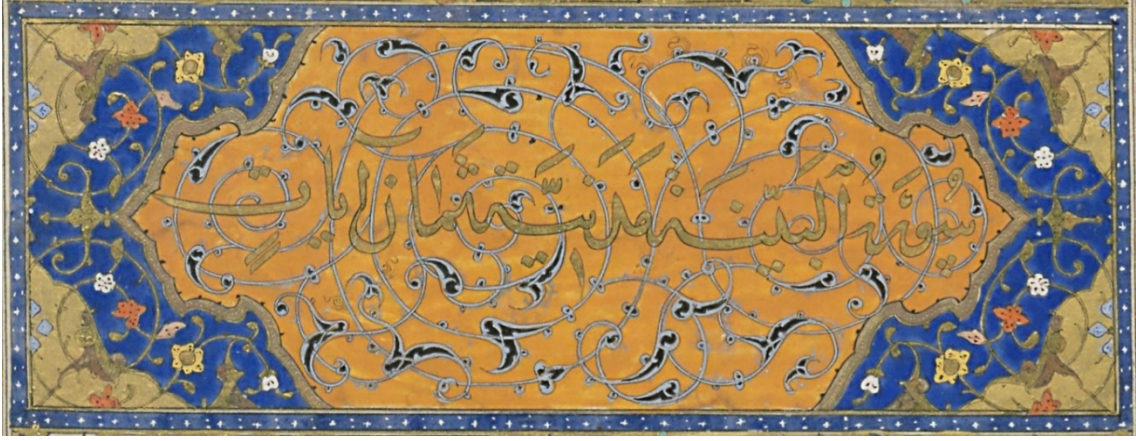 سُورَةُ الْبَيِّنَةِ مَدَنِيَّةٌ ثَمَانِ اٰيَاتٍ